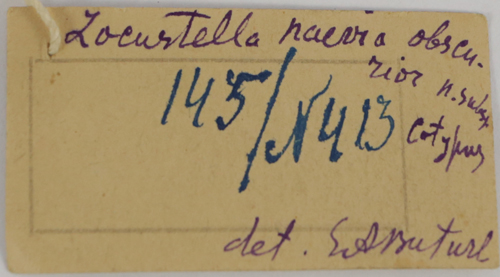 Locustella naevia obscu-
rior n. subsp.
Cotypus
145/N413
det. S.A. Buturl